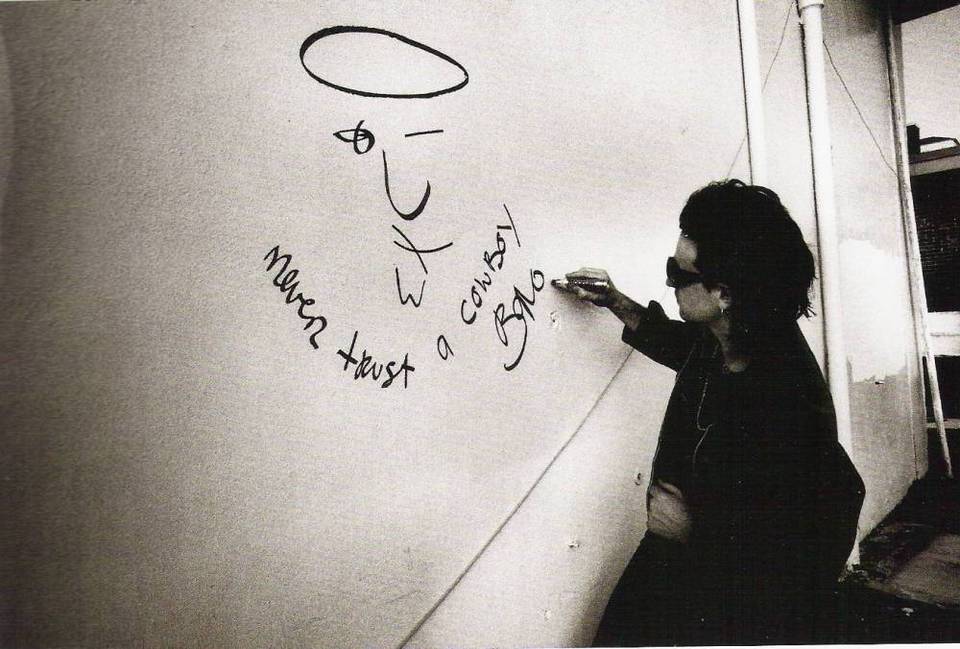 never trust a cowboy
Bono